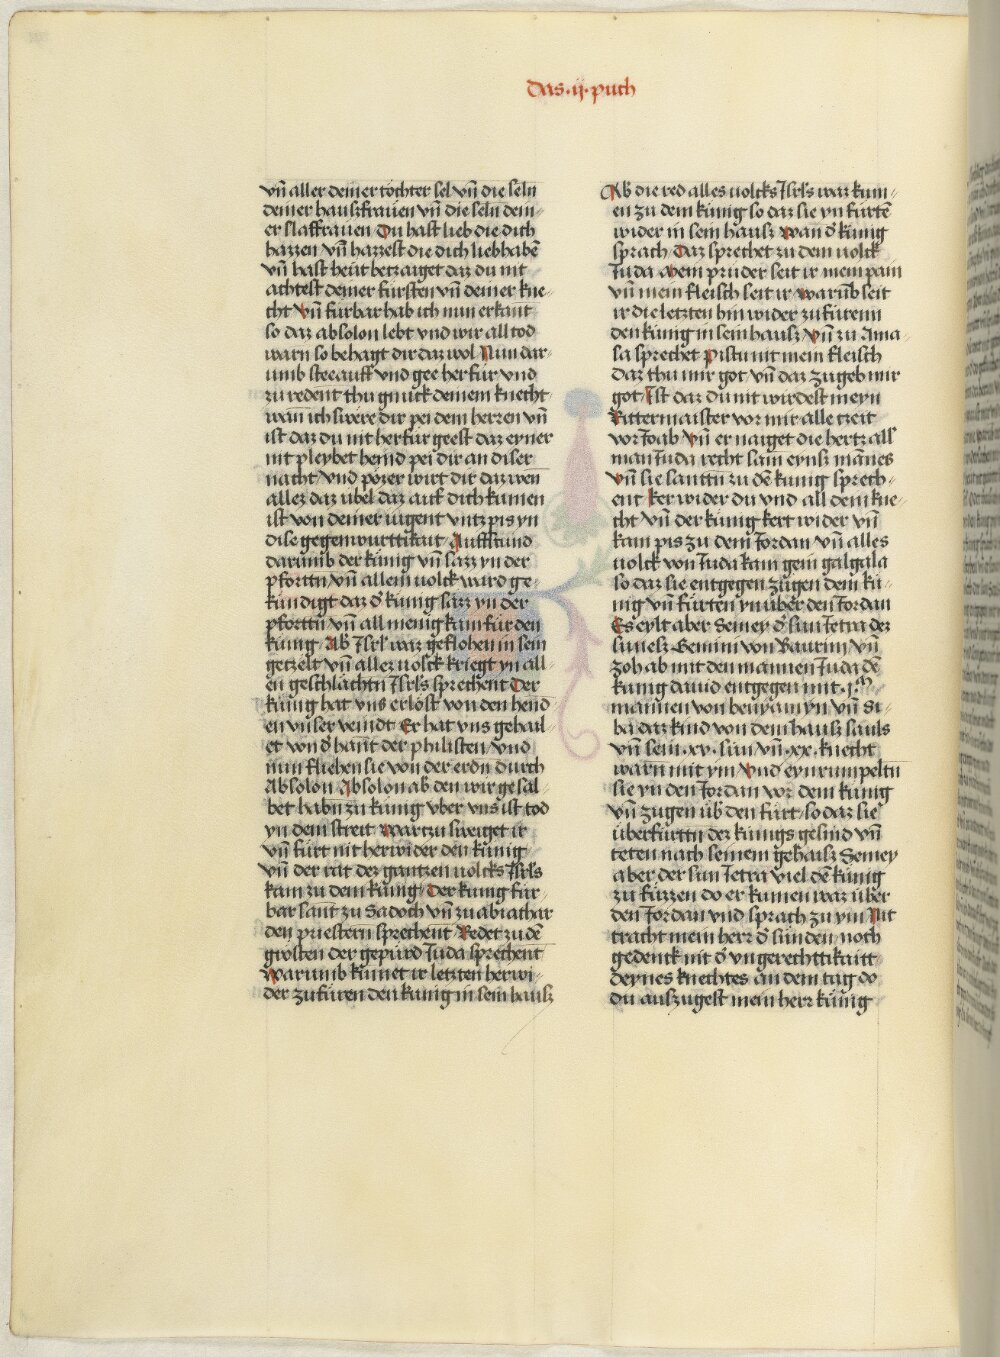 Das .ij. puch
vn̄ aller deiner töchter sel vn̄ die seln
deiner hauszfrauen vn̄ die seln dein-
er slaffrauen Du hast lieb die dich
hazzen vn̄ hazzest die dich liebhabē
vn̄ hast heüt betzaiget daz du nit
achtest deiner fürsten vn̄ deiner kne-
cht Vn̄ fürbar hab ich nun erkant
so daz absolon lebt vnd wir all tod
warn so behagt dir daz wol Nun dar-
umb stee auff vnd gee herfür vnd
zu redent thu gnück deinem knecht
wan̄ ich swere dir pei dem herren vn̄
ist daz du nit herfur geest daz eyner
nit pleybet heind pei dir an diser
nacht vnd pözer wirt dir daz wen
allez daz übel daz auf dich kumen
ist von deiner iugent vntz pis yn
dise gegenwurttikait Auffstund
darumb der künig vn̄ sazz yn der
pforttn vn̄ allem uolck ward ge-
kündigt daz d̕ künig säzz yn der
pforttn vn̄ all menig kam für den
künig Ab Isrl̕ waz geflohen in sein
getzelt vn̄ allez uolck kriegt yn all-
en geschlächtn Isrl̕s sprechent Der
künig hat vns erlöst von den hend
en vnser veindt Er hat vns gehail
et von d̕ hant der philisten vnd
nun fliehen sie von der erdn durch
Absolon Absolon ab den wir gesal-
bet habn zu künig vber vns ist tod
yn dem streit Wartzu sweiget ir
vn̄ fürt nit herwider den künig
vn̄ der rät dez gantzen uolcks Isrl̕s
kam zu dem künig Der kunig für
bar sant zu Sadoch vn̄ zu abiathar
den priestern sprechent Redet zu dē
grösten der gepurd Iuda sprechent
Warumb kumet ir letzten herwi-
der zu füren den künig in sein hausz
Ab die red alles uolcks Isrl̕s waz kum-
en zu dem künig so daz sie yn fürtē
wider in sein hausz Wan d̕ künig
sprach Daz sprechet zu dem uolck
Iuda Mein prüder seit ir mein pain
vn̄ mein fleisch seit ir Warūb seit
ir die letzten hin wider zu fürenn
den künig in sein hausz Vn̄ zu Ama-
sa sprechet Pistu nit mein fleisch
Daz thu mir got vn̄ daz zugeb mir
got Ist daz du nit wirdest meyn
Rittermaister vor mir alle tzeit
vor Joab Vn̄ er naiget die hertz all̕
man Iuda recht sam eynsz mānes
Vn̄ sie santtn zu dē kunig sprech-
ent Ker wider du vnd all dein kne-
cht Vn̄ der künig kert wider vn̄
kam pis zu dem Jordan vn̄ alles
uolck von Iuda kam gein galgala
so daz sie entgegen zugen dem kü-
nig vn̄ fürten yn über den Jordan
Es eylt aber Semey d̕ sun Jetra dez
sunesz Gemini von Baurim vn̄
zoh ab mit den mannen Iuda dē
künig dauid entgegen mit .j.ᵐ
mannen von benyamyn vn̄ Si-
ba daz kind von dem hausz sauls
vn̄ sein .xv. sün vn̄ .xx. knecht
warn mit ym Vnd eynrumpeltn
sie yn den Jordan vor dem künig
vn̄ zugen üb̕ den fürt so daz sie
überfürttn dez künigs gesind vn̄
teten nach seinem gehaisz Semey
aber der sun Jetra viel dē künig
zu füzzen do er kumen waz über
den Jordan vnd sprach zu ym Nit
tracht mein herr d̕ sünden noch
gedenck nit d̕ vngerechttikaitt
deynes knechtes an dem tag do
du auszugest mein herr künig